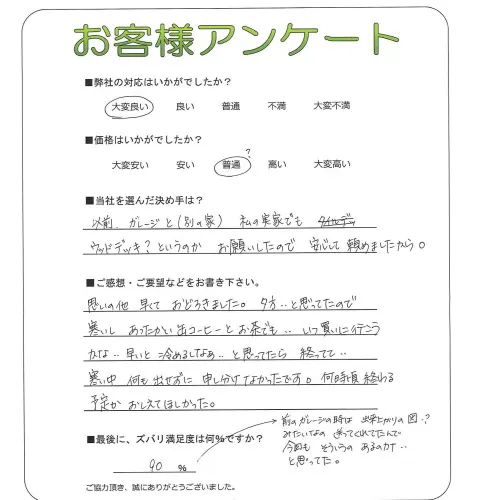 お客様アンケート
■弊社の対応はいかがでしたか?
大変良い 良い 普通 不満 大変不満
■価格はいかがでしたか?
?
大変安い 安い 普通 高い 大変高い
■当社を選んだ決め手は?
以前、ガレージと(別の家) 私の実家でも
ウッドデッキ?というのか お願いしたので 安心して 頼めましたから。
■ご感想・ご要望などをお書き下さい。
思いの他 早くて おどろきました。夕方‥と思ってたので
寒いし あったかい缶コーヒーとお茶でも‥いつ買いに行こう
かな‥早いと冷めるしなぁ‥と思ってたら 終ってて‥
寒い中 何も出せずに 申し分けなかったです。何時頃 終わる
予定か おしえてほしかった。
前のガレージの時は 出来上がりの図・?
みたいなの 送ってくれてたんで
今回も そういうの あるのカナ‥
と思ってた。
■最後に、ズバリ満足度は何%ですか?
90 %
ご協力頂き、誠にありがとうございました。